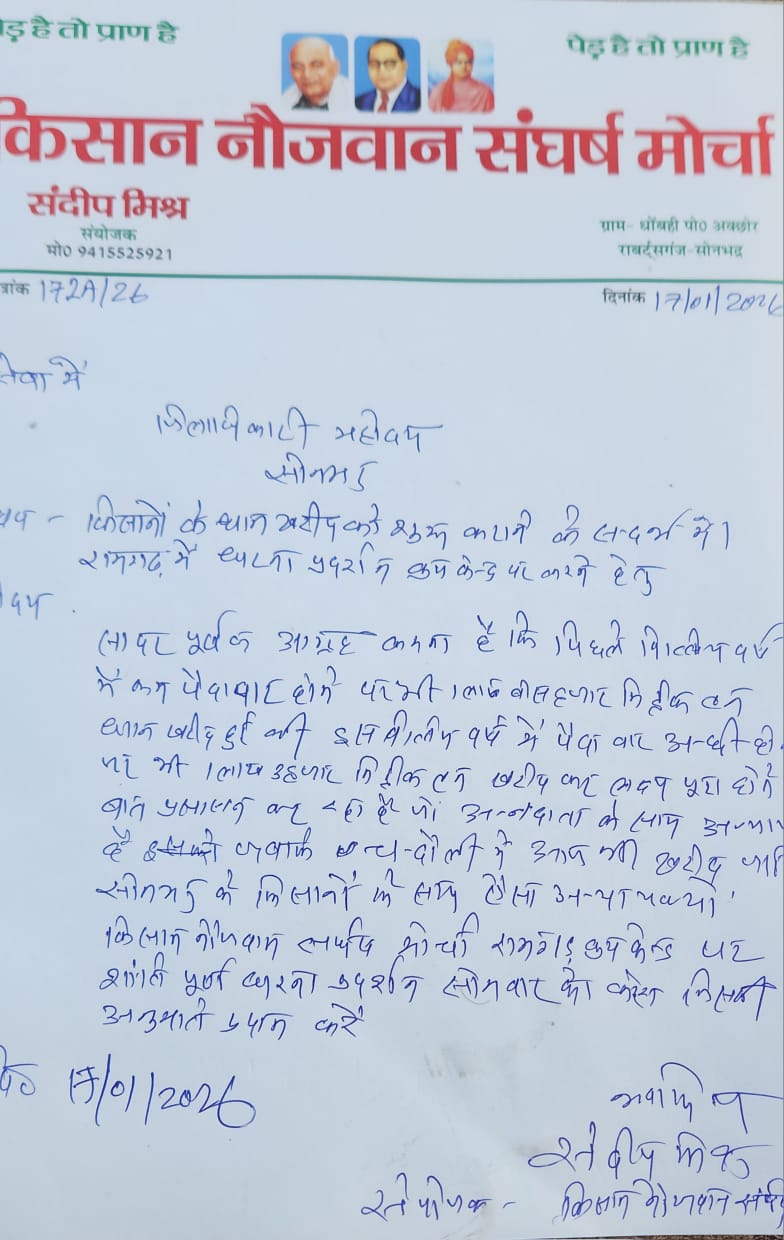 ेड़ है तो प्राण है
पेड़ है तो प्राण है
किसान नौजवान संघर्ष मोर्चा
संदीप मिश्र
संयोजक
मो0 9415525921
ग्राम- धोंबही पो0 अक्छोर
राबर्ट्सगंज-सोनभद्र
त्रांक 172A/26
दिनांक 17/01/2026
सेवा में
जिलाधिकारी महोदय
सोनभद्र
षय - किसानों के धान खरीद को शुरू कराने के सन्दर्भ में।
रामगढ़ में धरना प्रदर्शन क्रय केन्द्र पर करने हेतु
ोदय
सादर पूर्वक आग्रह करना है कि पिछले वित्तीय वर्ष
में कम पैदावार होने पर भी 1 लाख बीस हजार मिट्रीक टन
धान खरीद हुई थी इस वित्तीय वर्ष में पैदावार अच्छी हो
पर भी 1 लाख हजार मिट्रीक टन खरीद कर लक्ष्य पूरा होने
बात प्रशासन कर रहा है जो अन्नदाता के साथ अन्या
है जबकि चन्दौली में आज भी खरीद जा
सोनभद्र के किसानों के साथ ऐसा अन्याय क्यों
किसान नौजवान संघर्ष मोर्चा रामगढ़ क्रय केन्द्र पर
शांती पूर्ण धरना प्रदर्शन सोमवार को करेगा जिसकी
अनुमति प्रदान करें
17/01/2026
भवदीय
संदीप मिश्र
संयोजक - किसान नौजवान संघर्ष